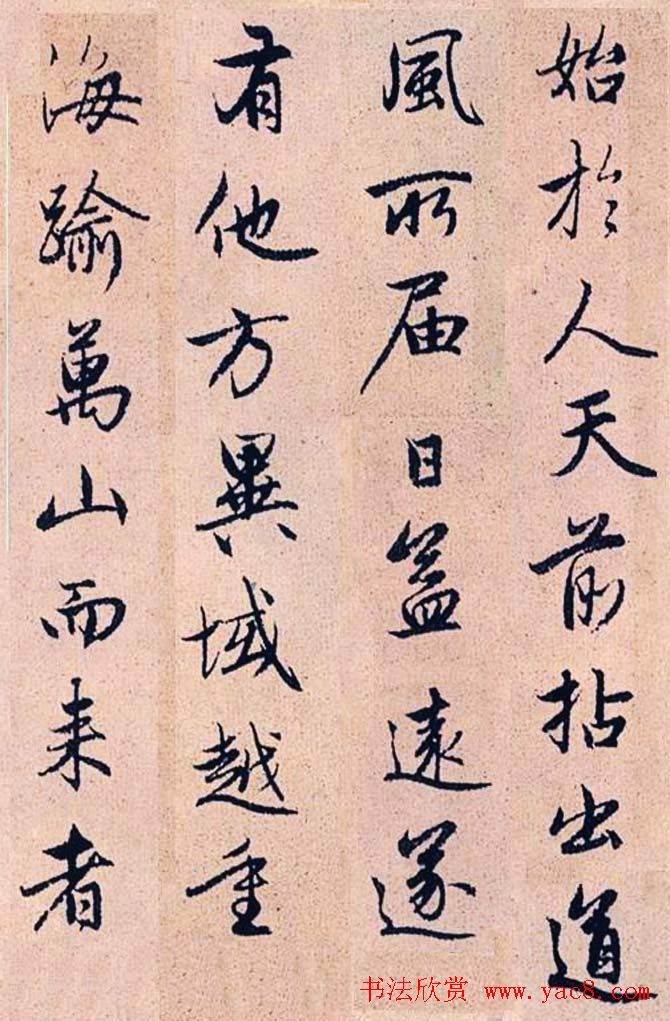 始於人天前拈出道
風所届日益遠遂
有他方異域越重
海踰萬山而来者
书法欣赏 www.yac8.com